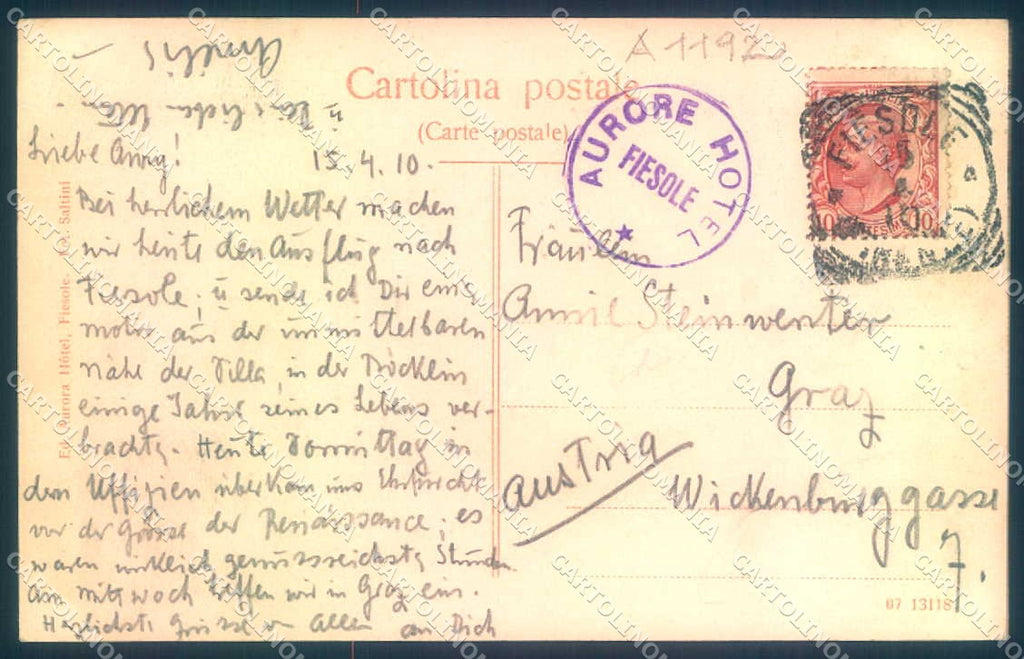 A 1192
Cartolina postale
(Carte postale)
AURORE HOTEL
FIESOLE
FIESOLE
Liebe Anny!
15.4.10.
Bei herrlichem Wetter machen
wir heute den Ausflug nach
Fiesole; u sende ich Dir eine
aus der unmittelbaren
nähe der Villa, in der Böcklin
einige Jahre seines Lebens ver-
brachte. Heute Vormittag in
den Uffizien überkam uns Ehrfurcht
vor der Grösse der Renaissance; es
waren wirklich genussreichste Stunden
Am Mittwoch treffen wir in Graz ein.
Herzlichste Grüsse von Allen an Dich
u. Deine lieben
Fräulein
Annie Steinwenter
Graz
Austria
Wickenburggasse
7.
Ed. Aurora Hôtel, Fiesole - Fot. Saltini
07 13118
CARTOLINOMANIA